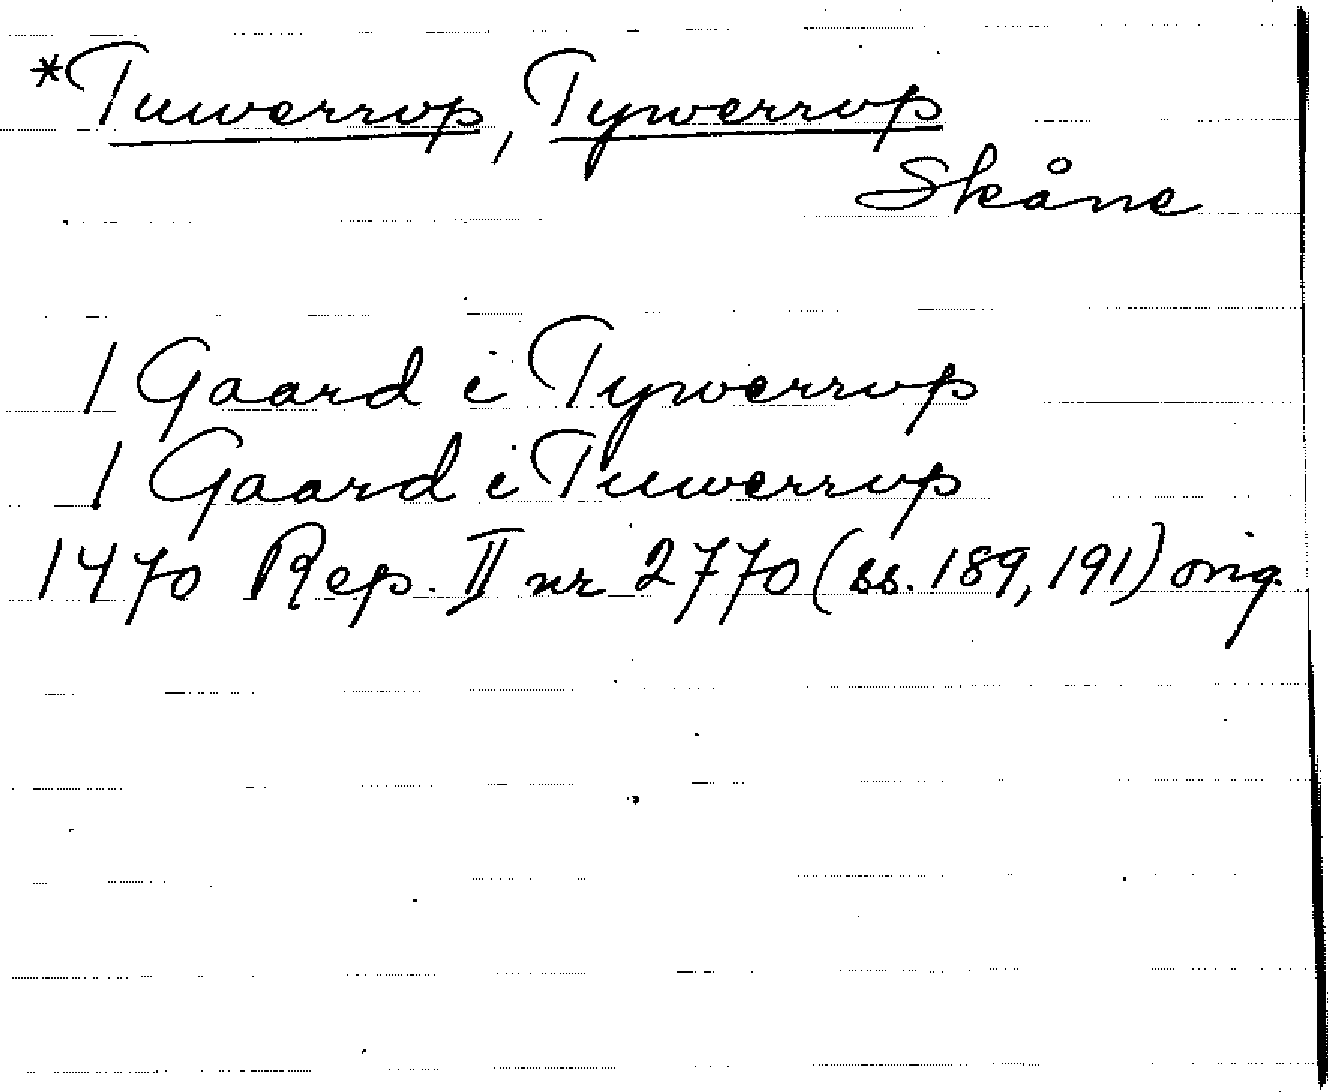 *Tuwerrup, Tywerrup
Skåne
1 Gaard i Tywerrup
1 Gaard i Tuwerrup
1470 Rep. II nr 2770 (ss. 189, 191) orig.